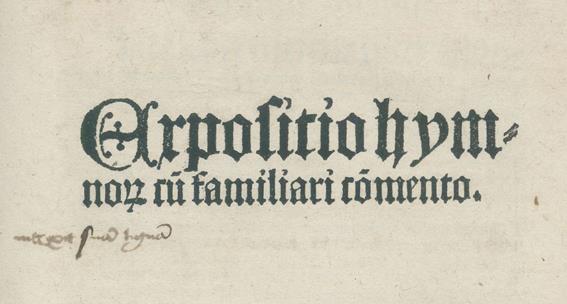 Expositio hym-
noꝝ cū familiari cōmento.